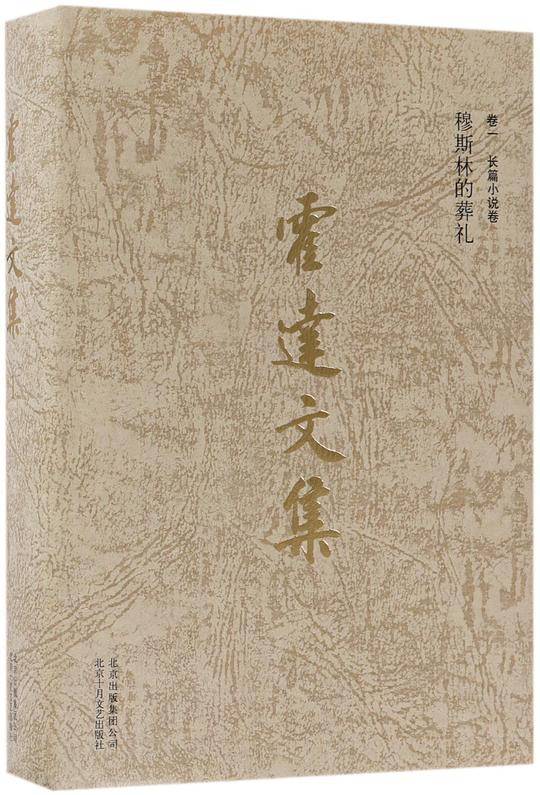 卷一 长篇小说卷
穆斯林的葬礼
霍達文集
北京出版集团公司
北京十月文艺出版社
霍達文集